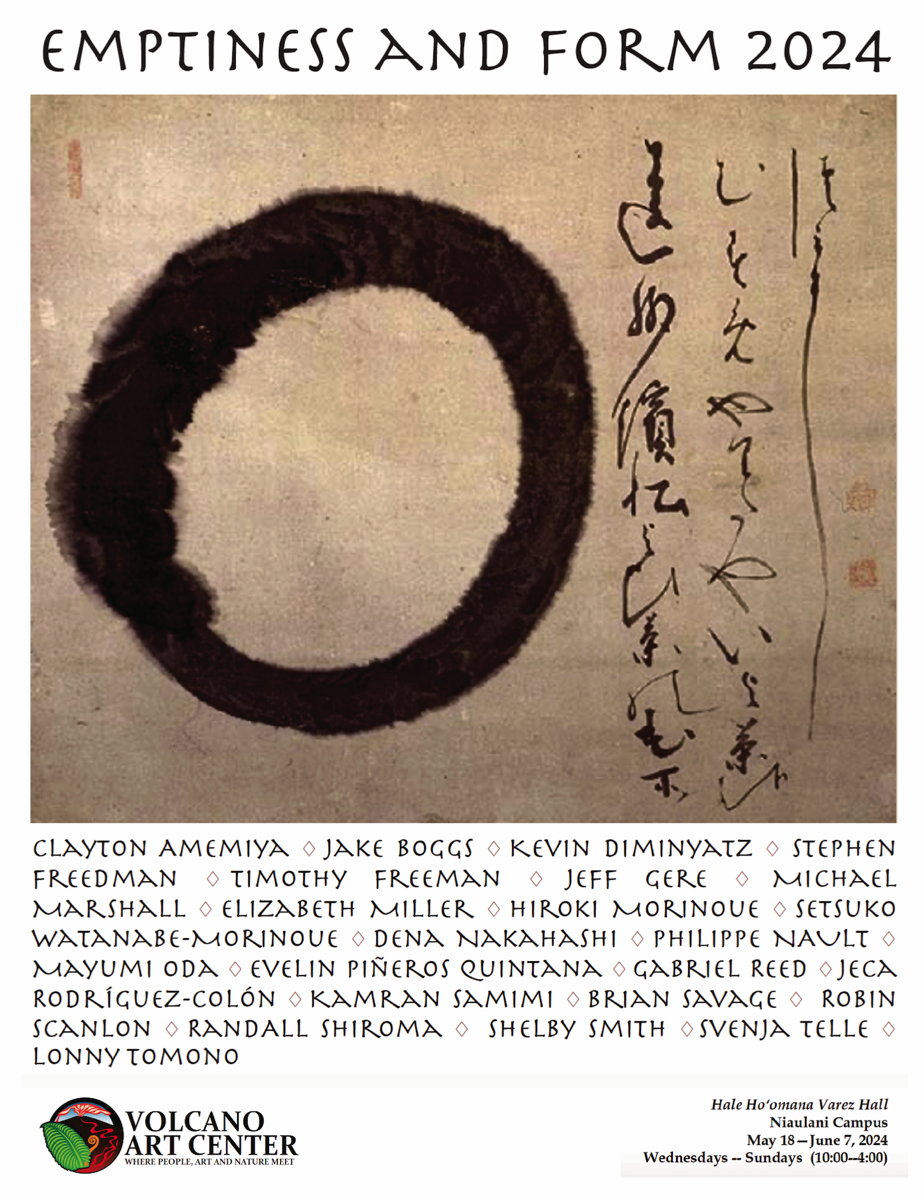 EMPTINESS AND FORM 2024
遠州濱松よひ茶の出所
むすめやりたやいよ茶
CLAYTON AMEMIYA ◊ JAKE BOGGS ◊ KEVIN DIMINYATZ ◊ STEPHEN
FREEDMAN ◊ TIMOTHY FREEMAN ◊ JEFF GERE ◊ MICHAEL
MARSHALL ◊ ELIZABETH MILLER ◊ HIROKI MORINOUE ◊ SETSUKO
WATANABE-MORINOUE ◊ DENA NAKAHASHI ◊ PHILIPPE NAULT ◊
MAYUMI ODA ◊ EVELIN PIÑEROS QUINTANA ◊ GABRIEL REED ◊ JECA
RODRÍGUEZ-COLÓN ◊ KAMRAN SAMIMI ◊ BRIAN SAVAGE ◊ ROBIN
SCANLON ◊ RANDALL SHIROMA ◊ SHELBY SMITH ◊ SVENJA TELLE ◊
LONNY TOMONO
VOLCANO
ART CENTER
WHERE PEOPLE, ART AND NATURE MEET
Hale Ho‘omana Varez Hall
Niaulani Campus
May 18—June 7, 2024
Wednesdays -- Sundays (10:00--4:00)